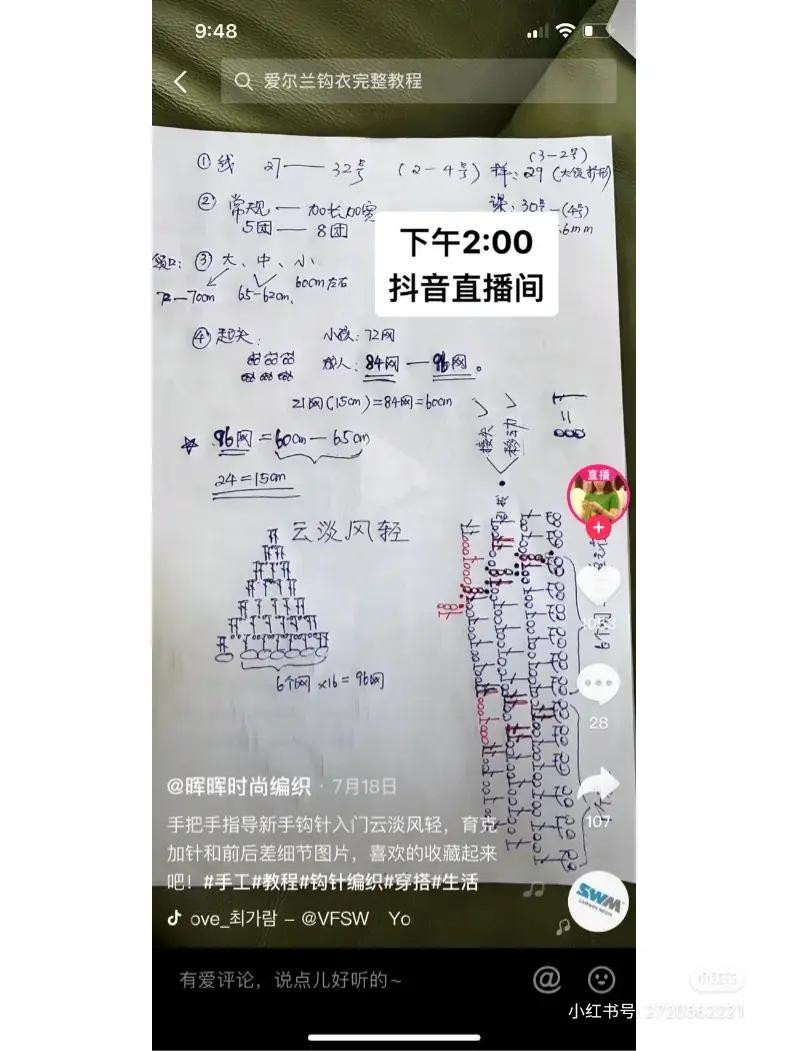 9:48
爱尔兰钩衣完整教程
(3-2号)
①线 27——32号 (2-4号) 样:29
②常规—加长加宽 课:30号-(4号)
5团——8团 .6mm
下午2:00
抖音直播间
领口:③大、中、小
—70cm 65-62cm、 60cm左右
④起头: 小孩:72网
成人:84网—96网。
21网(15cm)=84网=60cm
接头
移动
☆ 96网=60cm—65cm
24=15cm
直播
云淡风轻
6个网
6个网×16=96网
28
107
@晖晖时尚编织 · 7月18日
手把手指导新手钩针入门云淡风轻，育克
加针和前后差细节图片，喜欢的收藏起来
吧！#手工#教程#钩针编织#穿搭#生活
SWM
ove_최가람 – @VFSW Yo
有爱评论，说点儿好听的~
小红书
小红书号 2720562221